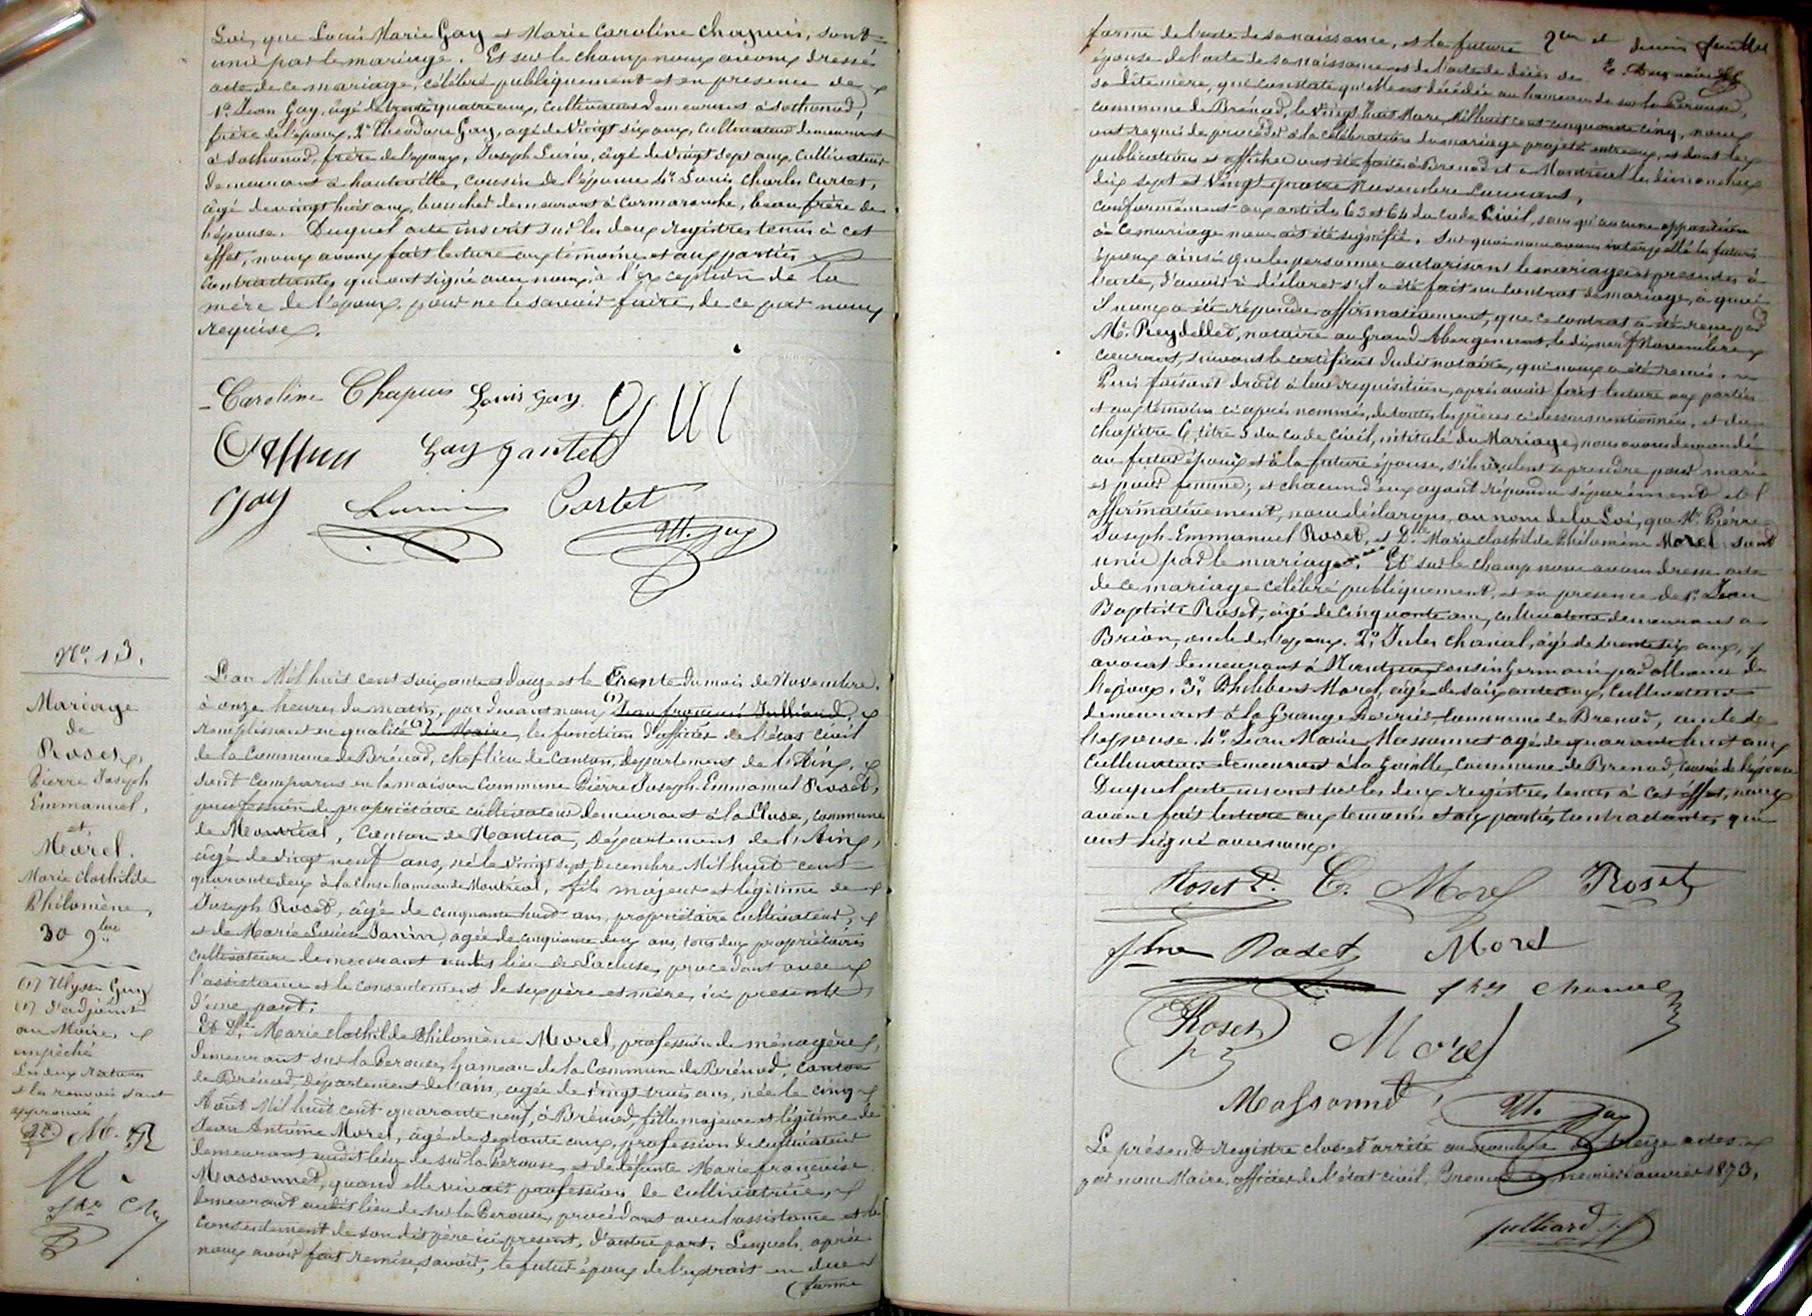 Loi, que Louis Marie Gay et Marie Caroline Chapuis, sont
unis par le mariage. Et sur le champ nous avons dressé
acte de ce mariage, célébré publiquement et en présence de
1o Jean Gay, âgé de trente quatre ans, cultivateur demeurant à Sothonod,
frère de l'époux, 2o Théodore Gay, agé de Vingt six ans, cultivateur demeurant
à Sothonod, frère de l'époux, Joseph Lurin, âgé de vingt sept ans, cultivateur
demeurant à hauteville, cousin de l'épouse 4o Louis Charles Curtet,
âgé de vingt huit ans, boucher demeurant à Cormaranche, beau frère de
l'épouse. Duquel acte inscrit sur les deux registres tenus à cet
effet, nous avons fait lecture aux témoins et aux parties
contractantes qui ont signé avec nous, à l'exception de la
mère de l'époux, pour ne le savoir faire, de ce par nous
requise.
Caroline Chapuis Louis Gay
Gay Gantet
Gay Lurin Curtet
U. Guy
No. 13.
Mariage
de
Roset,
Pierre Joseph
Emmanuel,
et
Morel.
Marie Clothilde
Philomène,
30 9bre
(1) Ulysse Guy
(2) d'adjoint
au Maire
empêché
Les deux ratures
et les renvois sont
approuvés
L'an Mil huit cent soixante et douze et le trente du mois de Novembre,
à onze heures du matin, par devant nous (1) Jean françois Julliard,
remplissant en qualité (2) de Maire, les fonctions d'officier de l'état civil
de la Commune de Brénod, chef lieu de canton, département de l'Ain,
sont comparus en la maison commune Pierre Joseph Emmanuel Roset,
profession de propriétaire cultivateur demeurant à la Cluse, commune
de Montréal, Canton de Nantua, département de l'Ain,
âgé de vingt neuf ans, né le vingt sept Décembre Mil huit cent
quarante deux à la Cluse hameau de Montréal, fils majeur et légitime de
Joseph Roset, âgé de cinquante huit ans, propriétaire cultivateur,
et de Marie Lucie Janin, agée de cinquante deux ans, tous deux propriétaires
cultivateurs demeurant au dit lieu de Lacluse, procédant avec
l'assistance et le consentement de ses père et mère, ici présents
d'une part.
Et Dlle Marie Clothilde Philomène Morel, profession de ménagère,
demeurant sur la Perouse, hameau de la Commune de Brénod, canton
de Brénod, département de l'ain, agée de vingt trois ans, née le cinq
Août Mil huit cent quarante neuf, à Brénod, fille majeure et légitime de
Jean Antoine Morel, âgé de septante ans, profession de cultivateur
demeurant audit lieu de sur la Perouse, et de défunte Marie françoise
Massonnet, quand elle vivait profession de cultivatrice,
demeurant audit lieu de sur la Perouse, procédant avec l'assistance et le
consentement de son dit père ici présent, d'autre part. Lesquels, après
nous avoir fait remise, savoir, le futur époux de l'extrait en due
forme
2em et dernier feuillet
forme de l'acte de sa naissance, et la future
épouse de l'acte de sa naissance et de l'acte de décès de
sa dite mère, qui constate qu'elle est décédée au hameau de sur la Perouse,
commune de Brénod, le Vingt huit Mars Mil huit cent cinquante cinq, nous
ont requis de procéder à la célébration du mariage projeté entre eux, et dont les
publications et affiches ont été faites à Brenod et à Montréal les dimanches
dix sept et Vingt quatre Novembre courant,
conformément aux articles 63 et 64 du code Civil, sans qu'aucune opposition
à ce mariage nous ait été signifiée. Sur quoi nous avons interpellé les futurs
époux ainsi que les personnes autorisant le mariage et présentes à
l'acte, d'avoir à déclarer s'il a été fait un contrat de mariage, à quoi
il nous a été répondu affirmativement, que ce contrat a été reçu par
Me. Reydellet, notaire au Grand Abergement, le dix neuf Novembre
courant, suivant le certificat dudit notaire, qui nous a été remis.
Puis faisant droit à leur réquisition, après avoir fait lecture aux parties
et aux témoins ci après nommés, de toutes les pièces ci dessus mentionnées, et du
chapitre 6 titre 5 du code civil, intitulé du Mariage, nous avons demandé
au futur époux et à la future épouse, s'ils veulent se prendre pour mari
et pour femme; et chacun d'eux ayant répondu séparément et
affirmativement, nous déclarons, au nom de la Loi, que Mr. Pierre
Joseph Emmanuel Roset, et Dlle Marie Clothilde Philomène Morel sont
unis par le mariage. Et sur le champ nous avons dressé acte
de ce mariage célébré publiquement, et en présence de 1o Jean
Baptiste Roset, âgé de cinquante ans, cultivateur demeurant à
Brion, oncle de l'époux. 2o Jules Chanal, âgé de trente six ans,
avocat demeurant à Nantua, cousin germain par alliance de
l'époux. 3o Philibert Morel, âgé de soixante ans, cultivateur
demeurant à la Grange commune de Brenod, oncle de
l'épouse. 4o Jean Marie Massonnet agé de quarante huit ans
Cultivateur demeurant à la Gouille, commune de Brenod, cousin de l'épouse
Duquel acte inscrit sur les deux registres tenus à cet effet, nous
avons fait lecture aux témoins et aux parties contractantes, qui
ont signé avec nous.
Roset P. C. Morel Roset
fme Roset Morel
Roset Morel
Massonnet
U. Guy
Le présent registre clos et arrêté au nombre de treize actes
par nous Maire, officier de l'état civil, Brenod le premier Janvier 1873.
Julliard J. f.